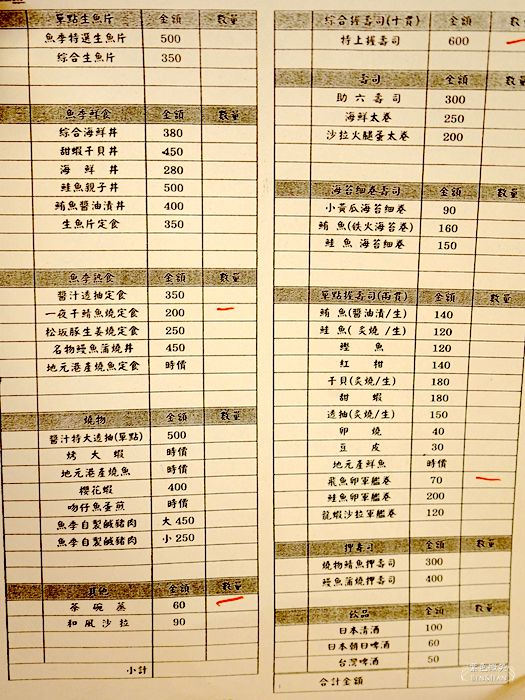 單點生魚片 金額 數量
魚季特選生魚片 500
綜合生魚片 350
魚季鮮食 金額 數量
綜合海鮮丼 380
甜蝦干貝丼 450
海鮮丼 280
鮭魚親子丼 500
鮪魚醬油漬丼 400
生魚片定食 350
魚季熟食 金額 數量
醬汁透抽定食 350
一夜干鯖魚燒定食 200
松坂豚生姜燒定食 250
名物鰻魚蒲燒丼 450
地元港產燒魚定食 時價
燒物 金額 數量
醬汁特大透抽(單點) 500
烤大蝦 時價
地元港產燒魚 時價
櫻花蝦 400
吻仔魚蛋煎 時價
魚季自製鹹豬肉 大 450
魚季自製鹹豬肉 小 250
其他 金額 數量
茶碗蒸 60
和風沙拉 90
小計
綜合握壽司(十貫) 金額 數量
特上握壽司 600
壽司 金額 數量
助六壽司 300
海鮮太卷 250
沙拉火腿蛋太卷 200
海苔細卷壽司 金額 數量
小黃瓜海苔細卷 90
鮪魚(鉄火海苔卷) 160
鮭魚海苔細卷 150
單點握壽司(兩貫) 金額 數量
鮪魚(醬油漬/生) 140
鮭魚(炙燒/生) 120
鰹魚 120
紅魽 140
干貝(炙燒/生) 180
甜蝦 180
透抽(炙燒/生) 150
卵燒 40
豆皮 30
地元產鮮魚 時價
飛魚卵軍艦卷 70
鮭魚卵軍艦卷 200
龍蝦沙拉軍艦卷 120
押壽司 金額 數量
燒物鯖魚押壽司 300
鰻魚蒲燒押壽司 400
飲品 金額 數量
日本清酒 100
日本朝日啤酒 60
台灣啤酒 50
合計金額